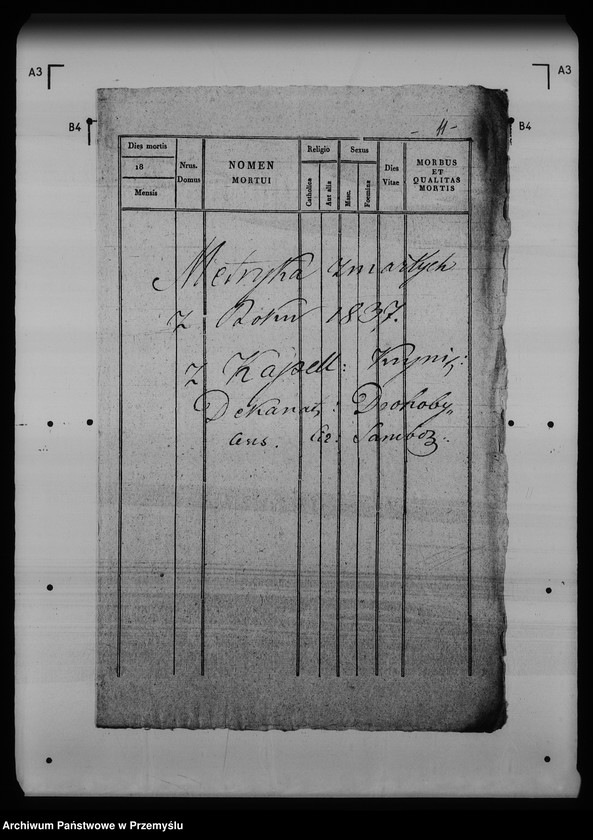 A3
A3
B4
B4
- 11 -
Dies mortis
18
Mensis
Nrus. Domus
NOMEN
MORTUI
Religio
Catholica
Aut alia
Sexus
Masc.
Foemina
Dies Vitae
MORBUS
ET
QUALITAS
MORTIS
Metryka zmarłych
z Roku 1837.
z Kapell: Krynic:
Dekanat: Drohoby„
cens. Cir: Sambor.
Archiwum Państwowe w Przemyślu